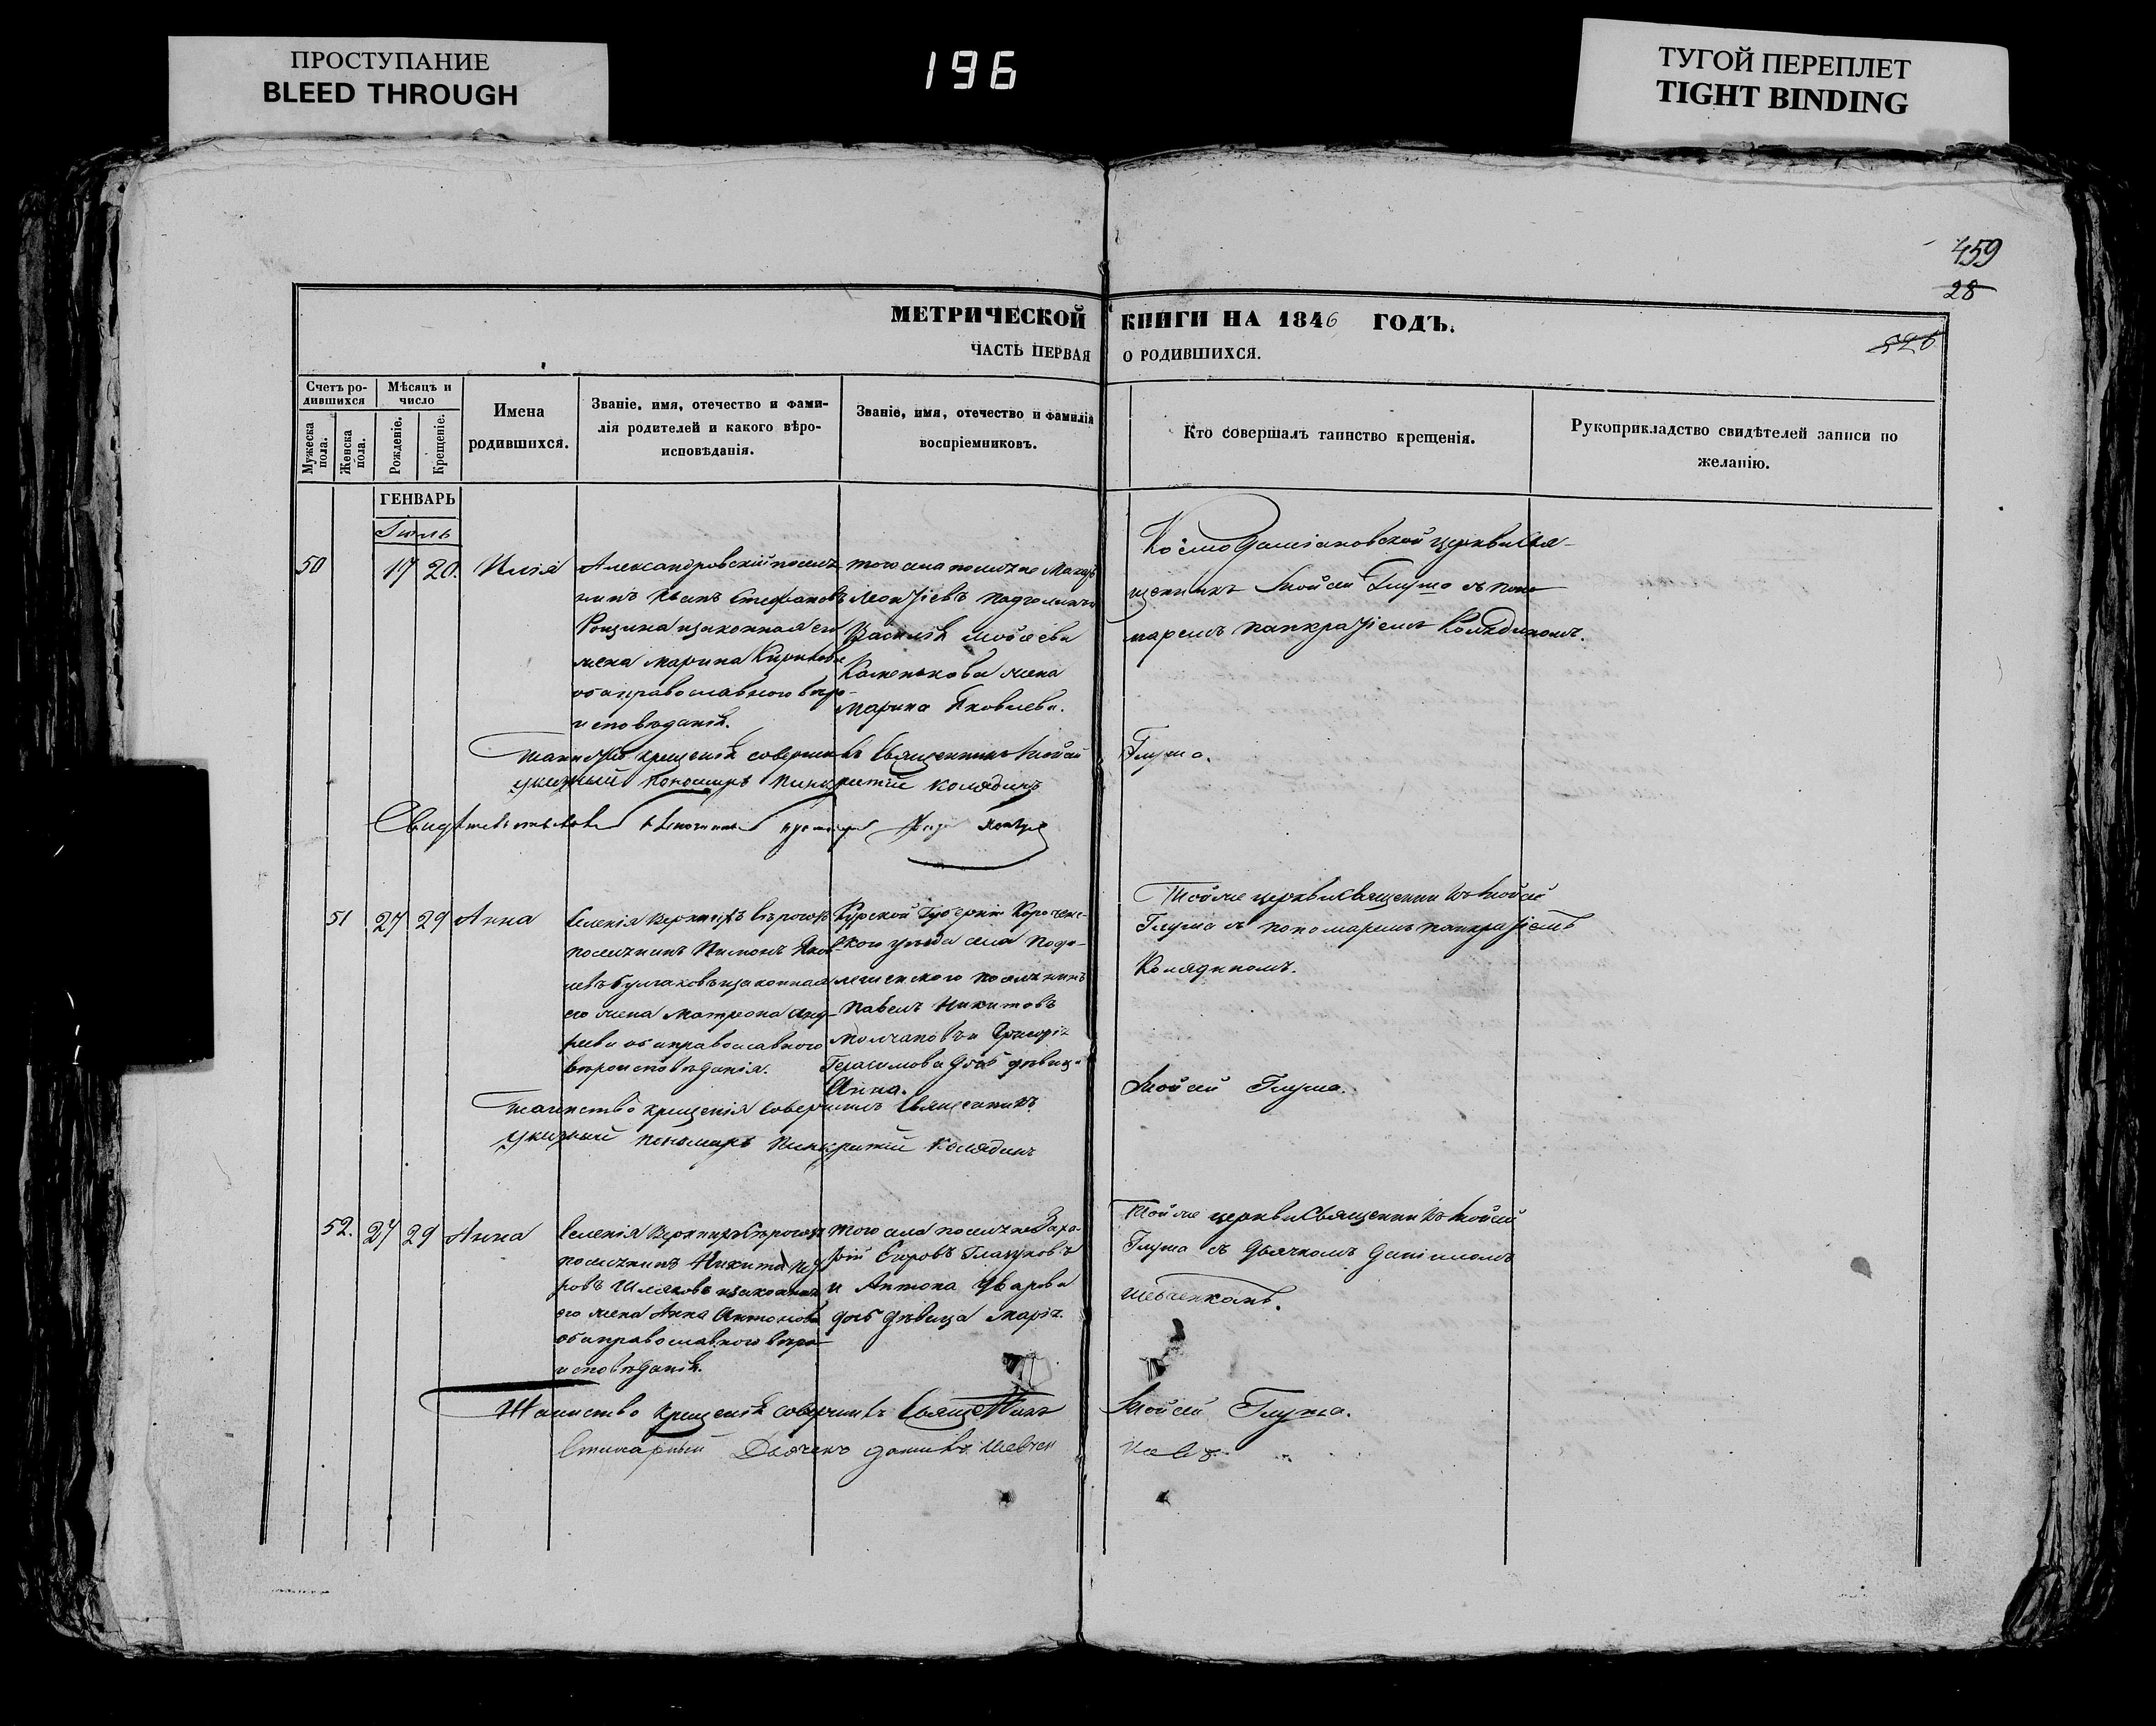 ПРОСТУПАНИЕ
BLEED THROUGH
196
ТУГОЙ ПЕРЕПЛЕТ
TIGHT BINDING
459
28
526
МЕТРИЧЕСКОЙ КНИГИ НА 1846 ГОДЪ.
ЧАСТЬ ПЕРВАЯ О РОДИВШИХСЯ.
Счетъ ро-
дившихся
Мужеска пола.
Женска пола.
Мѣсяцъ и
число
Рожденіе.
Крещеніе.
Имена
родившихся.
Званіе, имя, отечество и фами-
лія родителей и какого вѣро-
исповѣданія.
Званіе, имя, отечество и фамилія
воспріемниковъ.
Кто совершалъ таинство крещенія.
Рукоприкладство свидѣтелей записи по
желанію.
ГЕНВАРЬ
Іюль
50
17 20.
Илія
Александровскій поселя-
нинъ Иванъ Стефановъ
Рощина изаконная его
жена Марина Кирилова
оба православного вѣро-
исповѣданія.
того села поселяне Макар
Леонтіевъ
Василія Моисеева
Каменькова жена
Марина Яковлева.
Космо Даміановской церкви Свя-
щенникъ Мойсей Глума съ поно-
маремъ Панкратіемъ Колядиномъ.
Таинство крещенія совершилъ Священникъ Мойсей Глума.
указный пономарь Панкратій Колядинъ
51
27 29
Анна
Селенія Верхнихъ Сѣрогозъ
поселянинъ Пимонъ Яков-
левъ Булгаковъ изаконная
его жена Матрона Анд-
реева оба православного
вѣроисповѣданія.
Курской Губерніи Корочен-
ского уѣзда села Подо-
лешенского поселянинъ
Павелъ Никитовъ
Молчановъ и Григорія
Герасимова дочь дѣвица
Анна.
Тойже церкви Священникъ Мойсей
Глума съ пономаремъ Панкратіемъ
Колядиномъ.
Таинство крещенія совершилъ Священникъ Мойсей Глума.
указный пономарь Панкратій Колядинъ
52.
27 29
Анна
Селенія Верхнихъ Сѣрогозъ
поселянинъ Никита
изаконная
его жена Анна Антонова
оба православного вѣро-
исповѣданія.
того села поселяне Заха-
рій Егоровъ Глазуновъ
и Антона Уварова
дочь дѣвица Марія.
Тойже церкви Священникъ Мойсей
Глума съ Дьячкомъ Даніиломъ
Шевченкомъ.
Таинство крещенія совершилъ Священникъ Мойсей Глума.
Дьячекъ Данiилъ Шевчен